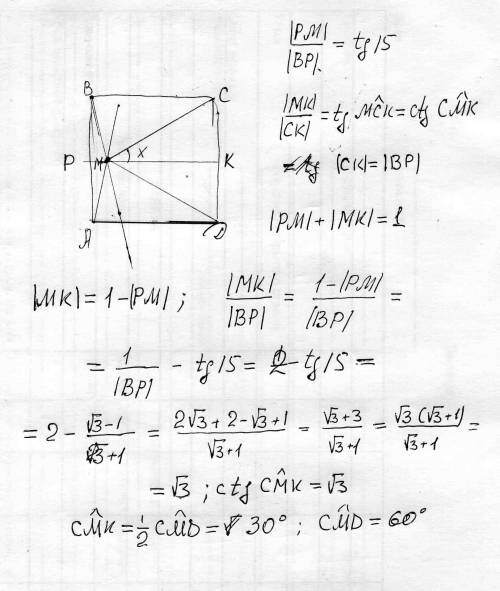 |PM| / |BP| = tg 15
B
C
|MK| / |CK| = tg MĈK = ctg CM̂K
P
M
x
K
= tg |CK| = |BP|
A
D
|PM| + |MK| = 1
|MK| = 1 - |PM| ; |MK| / |BP| = (1 - |PM|) / |BP| =
= 1 / |BP| - tg 15 = 2 - tg 15 =
= 2 - (√3 - 1) / (√3 + 1) = (2√3 + 2 - √3 + 1) / (√3 + 1) = (√3 + 3) / (√3 + 1) = √3 (√3 + 1) / (√3 + 1) =
= √3 ; ctg CM̂K = √3
CM̂K = 1/2 CM̂D = 30° ; CM̂D = 60°